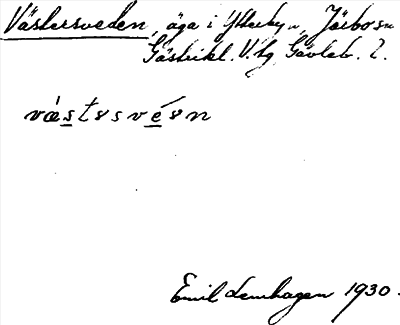 Västersveden, äga i Ytterbyn, Järbo sn
Gästrikl. V. tg, Gävleb. l.
væstəsvéən
Emil Lemhagen 1930.